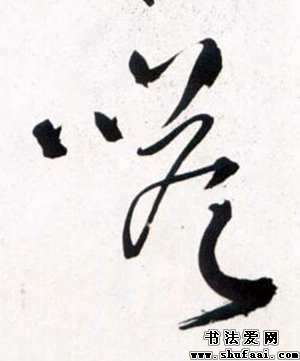 嗟
书法爱网
www.shufaai.com